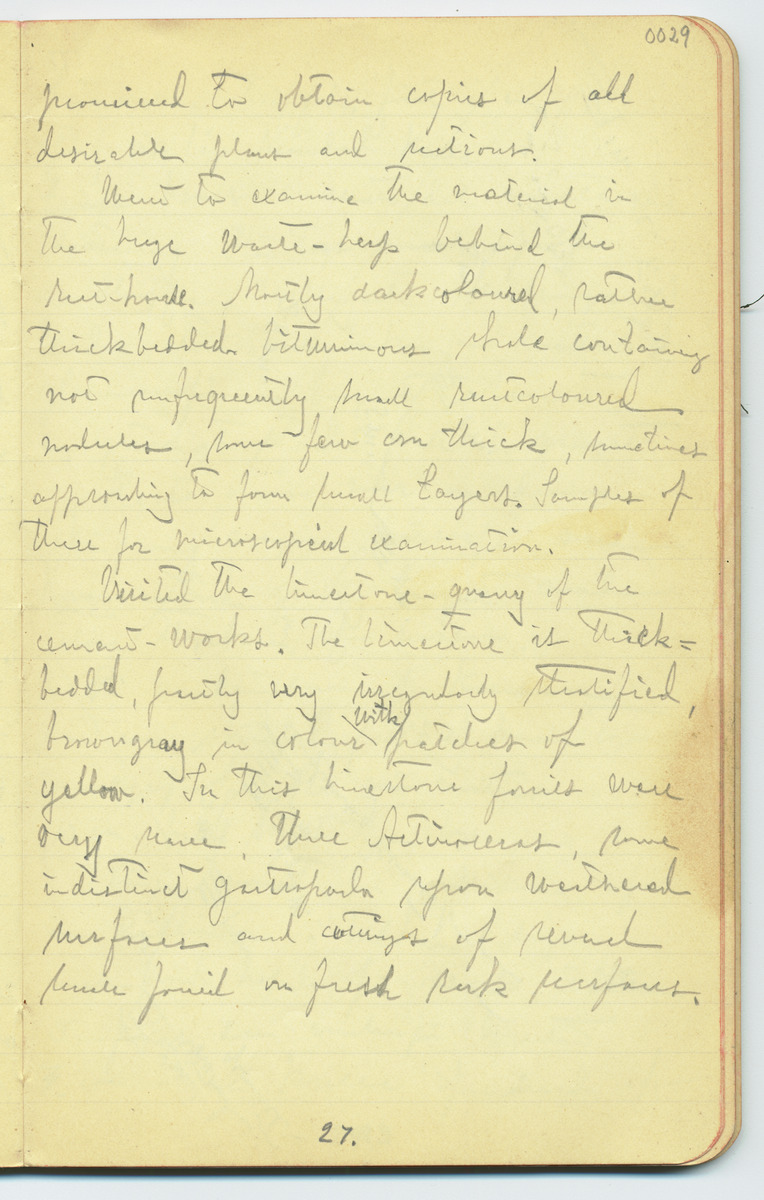 0029
promised to obtain copies of all
desirable plans and sections.
Went to examine the material in
the huge waste-heap behind the
rest-house. Mostly darkcoloured, rather
thickbedded bituminous shale containing
not unfrequently small rustcoloured
nodules, some few cm thick, sometimes
approaching to form small layers. Samples of
these for microscopical examination.
Visited the limestone-quarry of the
cement-works. The limestone is thick=
bedded, partly very irregularly stratified,
browngray in colour with patches of
yellow. In this limestone fossils were
very scarce. Three Actinoceras, some
indistinct gastropoda upon weathered
surfaces and cuttings of several
small fossil on fresh rock surfaces.
27.